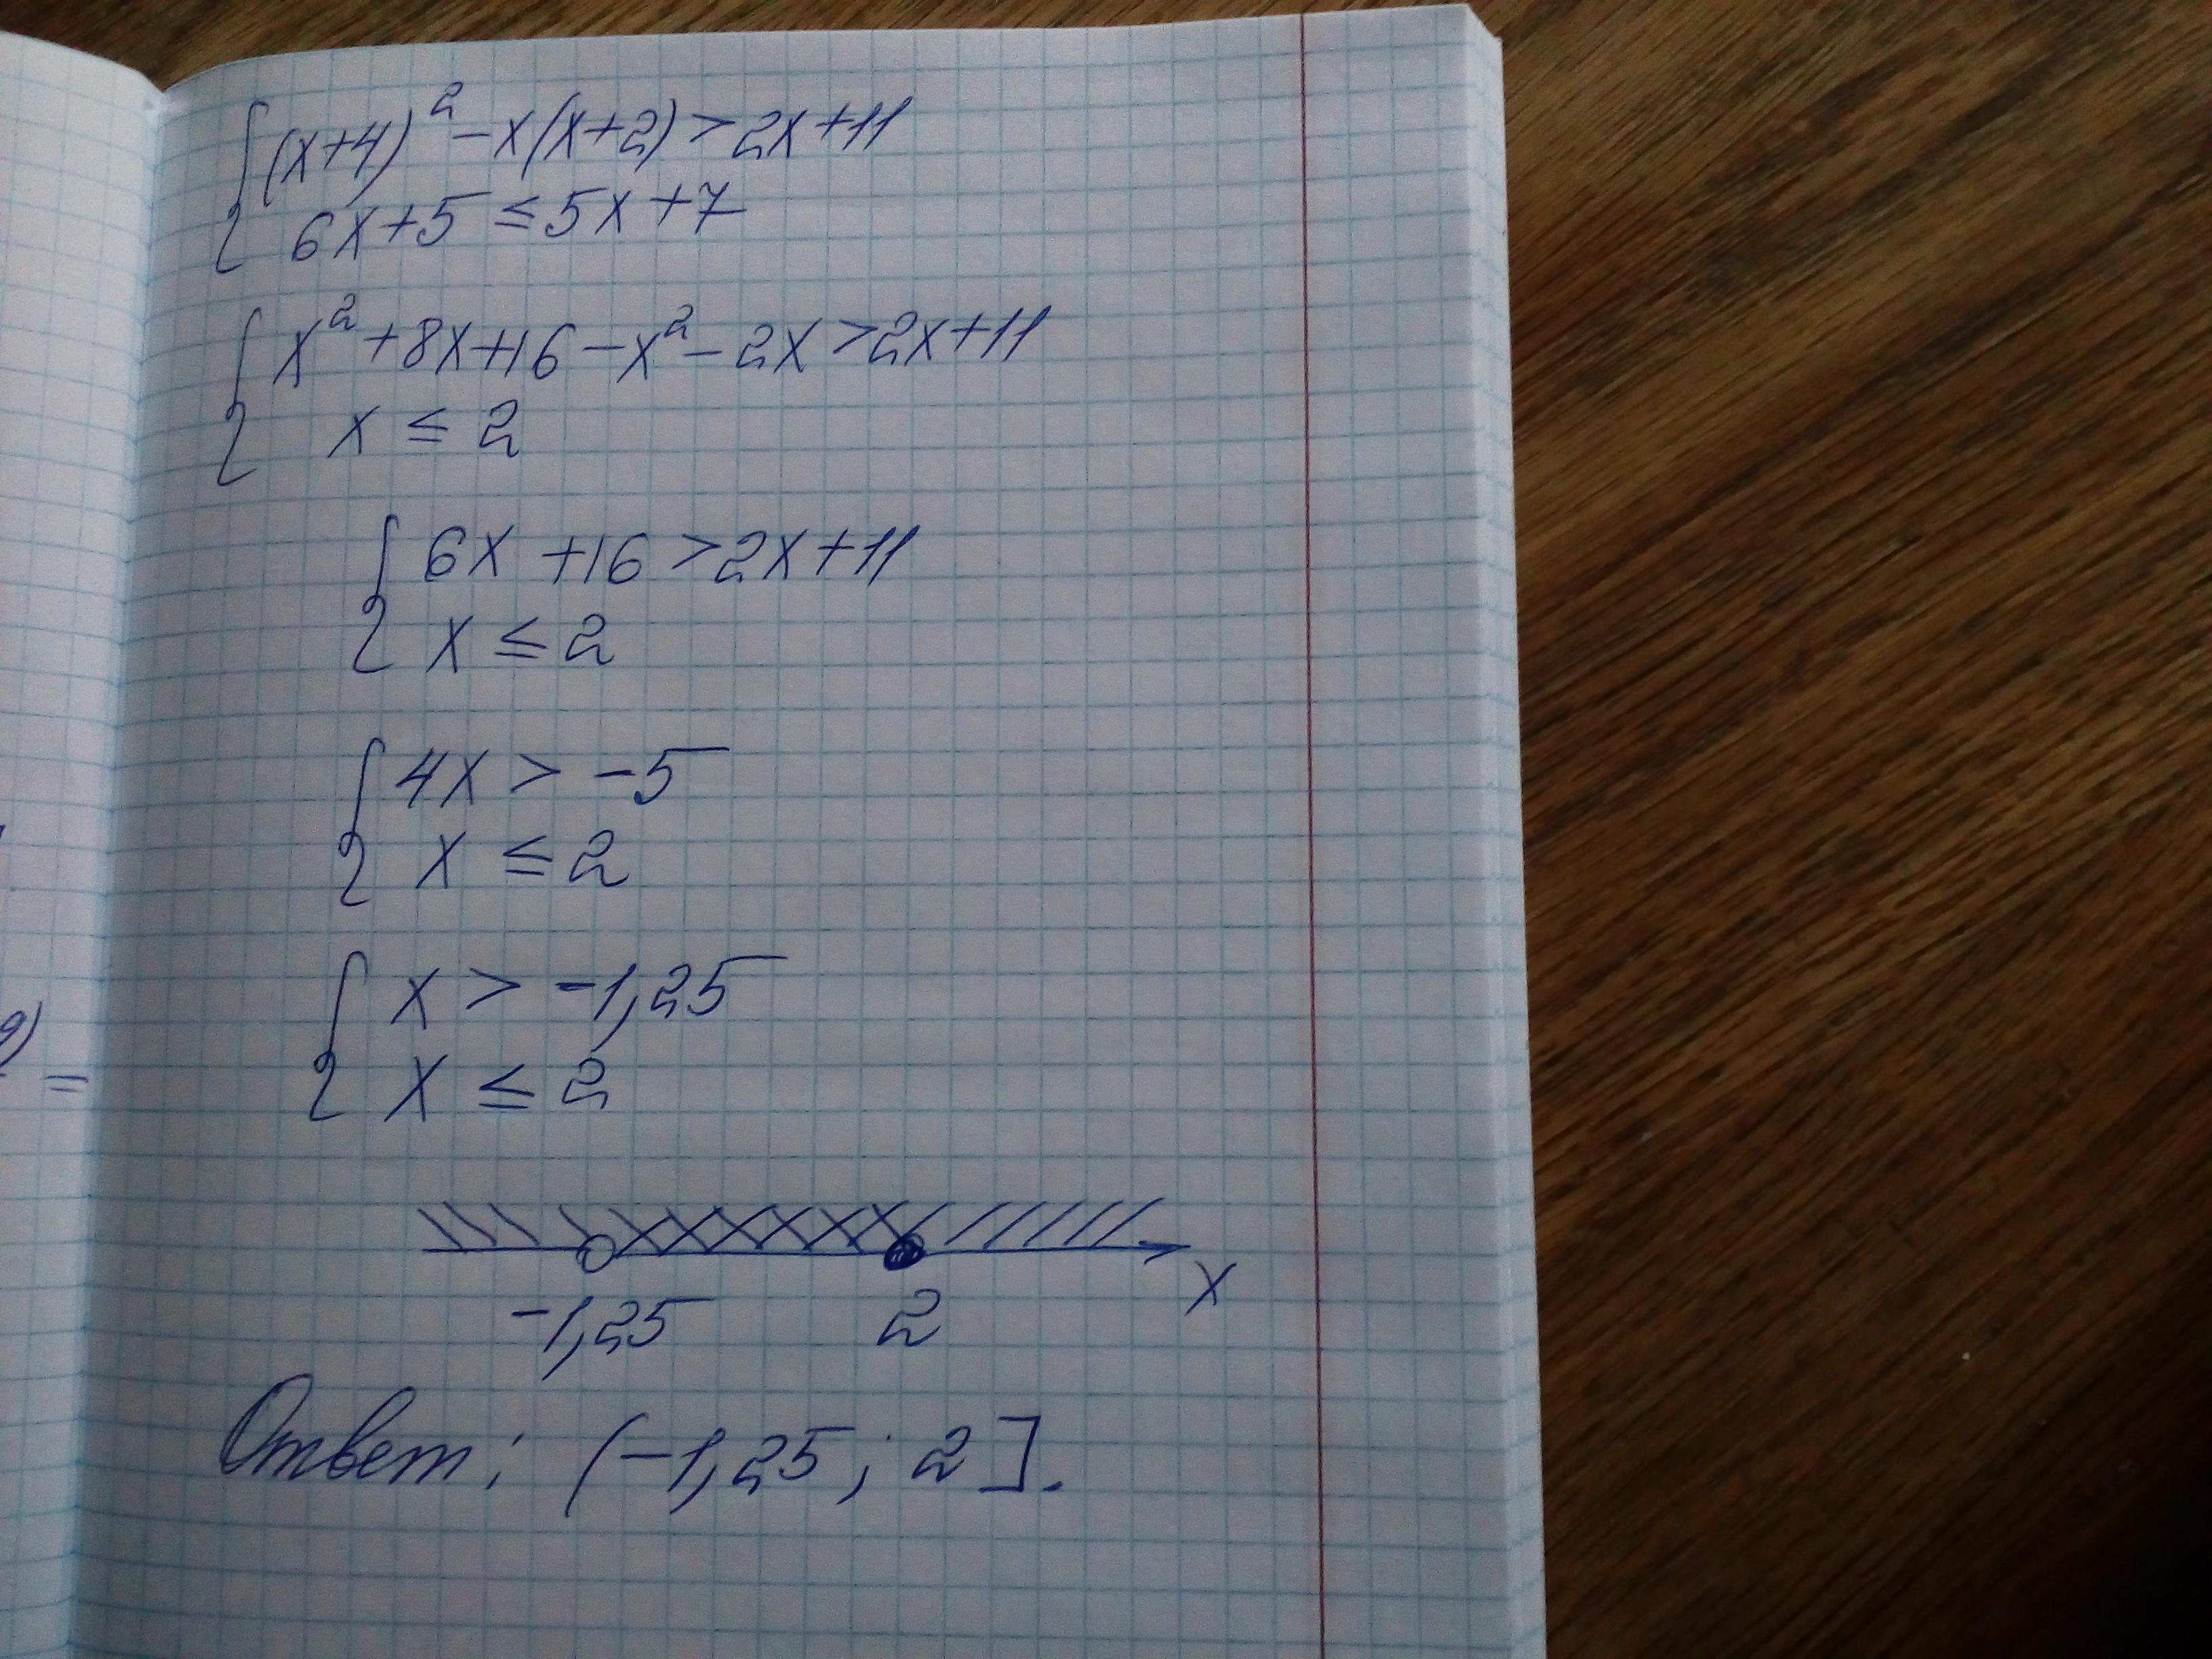 (x+4)² - x(x+2) > 2x+11
6x+5 ≤ 5x+7
x² + 8x+16 - x² - 2x > 2x+11
x ≤ 2
6x +16 > 2x+11
x ≤ 2
4x > -5
x ≤ 2
x > -1,25
x ≤ 2
x
-1,25 2
Ответ: (-1,25; 2].